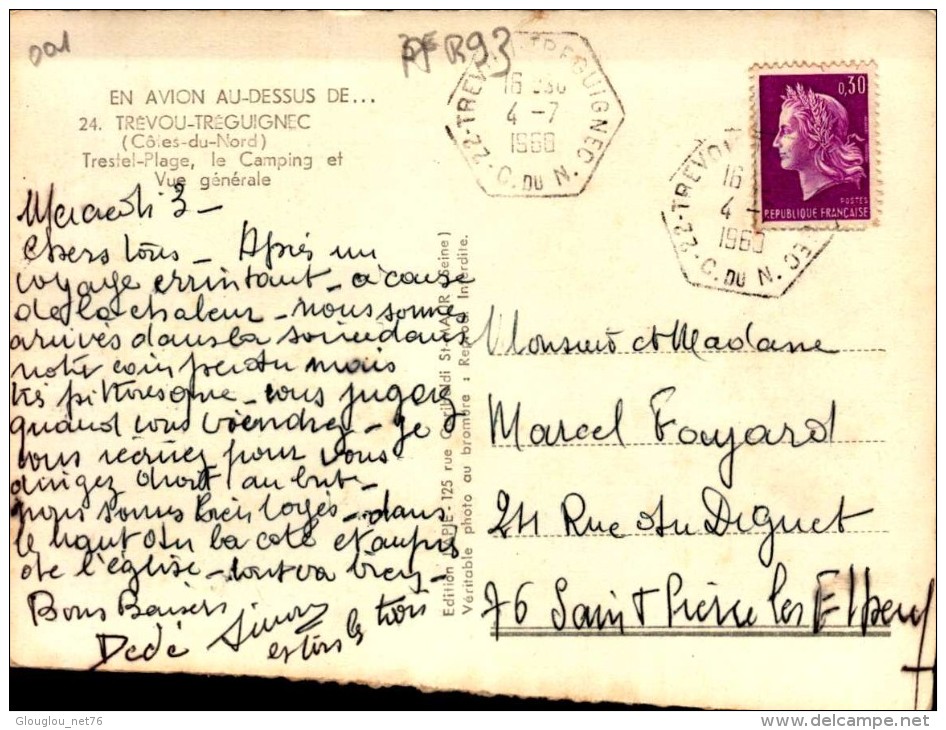 001
R93
EN AVION AU-DESSUS DE...
24. TRÉVOU-TRÉGUIGNEC
(Côtes-du-Nord)
Trestel-Plage, le Camping et
Vue générale
22-TREVOU-TREGUIGNEC
16 H30
4-7
1968
C. DU N.
0,30
POSTES
REPUBLIQUE FRANÇAISE
22-TREVOU
16
4 -
1968
C. DU N.
Mercredi 3 -
Chers tous - Après un
voyage errintant - a cause
de la chaleur - nous sommes
arrivés dans la soirée dans
notre coin perdu mais
très pittoresque - vous jugerez
quand vous viendrez - je
vous écrirez pour vous
dirigez droit au but -
nous sommes bien logés - dans
le haut du la cote et aupres
de l'église - tout va bien -
Bons Baisers
Dédé
et tous les trois
Edition LAPIE - 125 rue Garibaldi St-MAUR (Seine)
Véritable photo au bromure : Reprod. Interdite.
Monsieur et Madame
Marcel Fayard
24 Rue du Diguet
76 Saint Pierre les Elbeuf
Glouglou_net76
delcampe.net